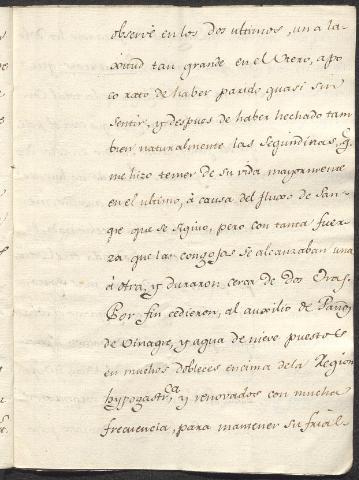 observé en los dos ultimos, una la-
xitud tan grande en el Utero, a po
co rato de haber parido quasi sin
sentir, y despues de haber hechado tam
bien naturalmente las segundinas, q.
me hizo temer de su vida mayormente
en el ultimo, à causa del fluxo de San-
gre que se siguio, pero con tanta fuer
za que las congojas se alcanzaban una
à otra, y duraron cerca de dos Oras.
Por fin cedieron, al auxilio de Paños
de Vinagre, y agua de nieve puestos
en muchos dobleces encima de la Region
hypogastrica, y renovados con mucha
frecuencia, para mantener su frial-